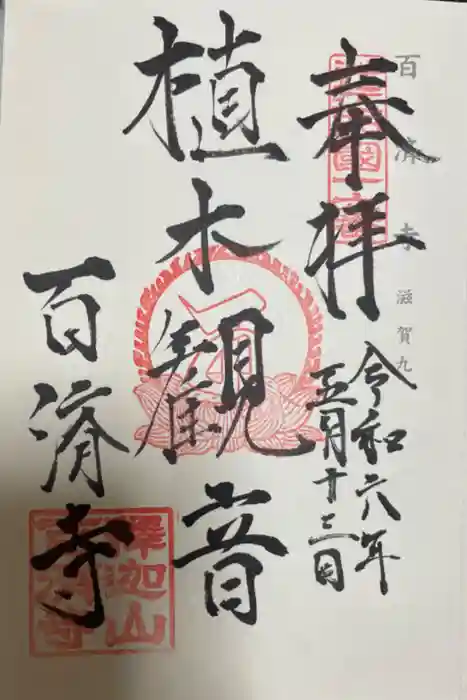 百済寺 滋賀九
奉拝
令和六年
五月十三日
植木観音
百済寺
釋迦山
百済寺